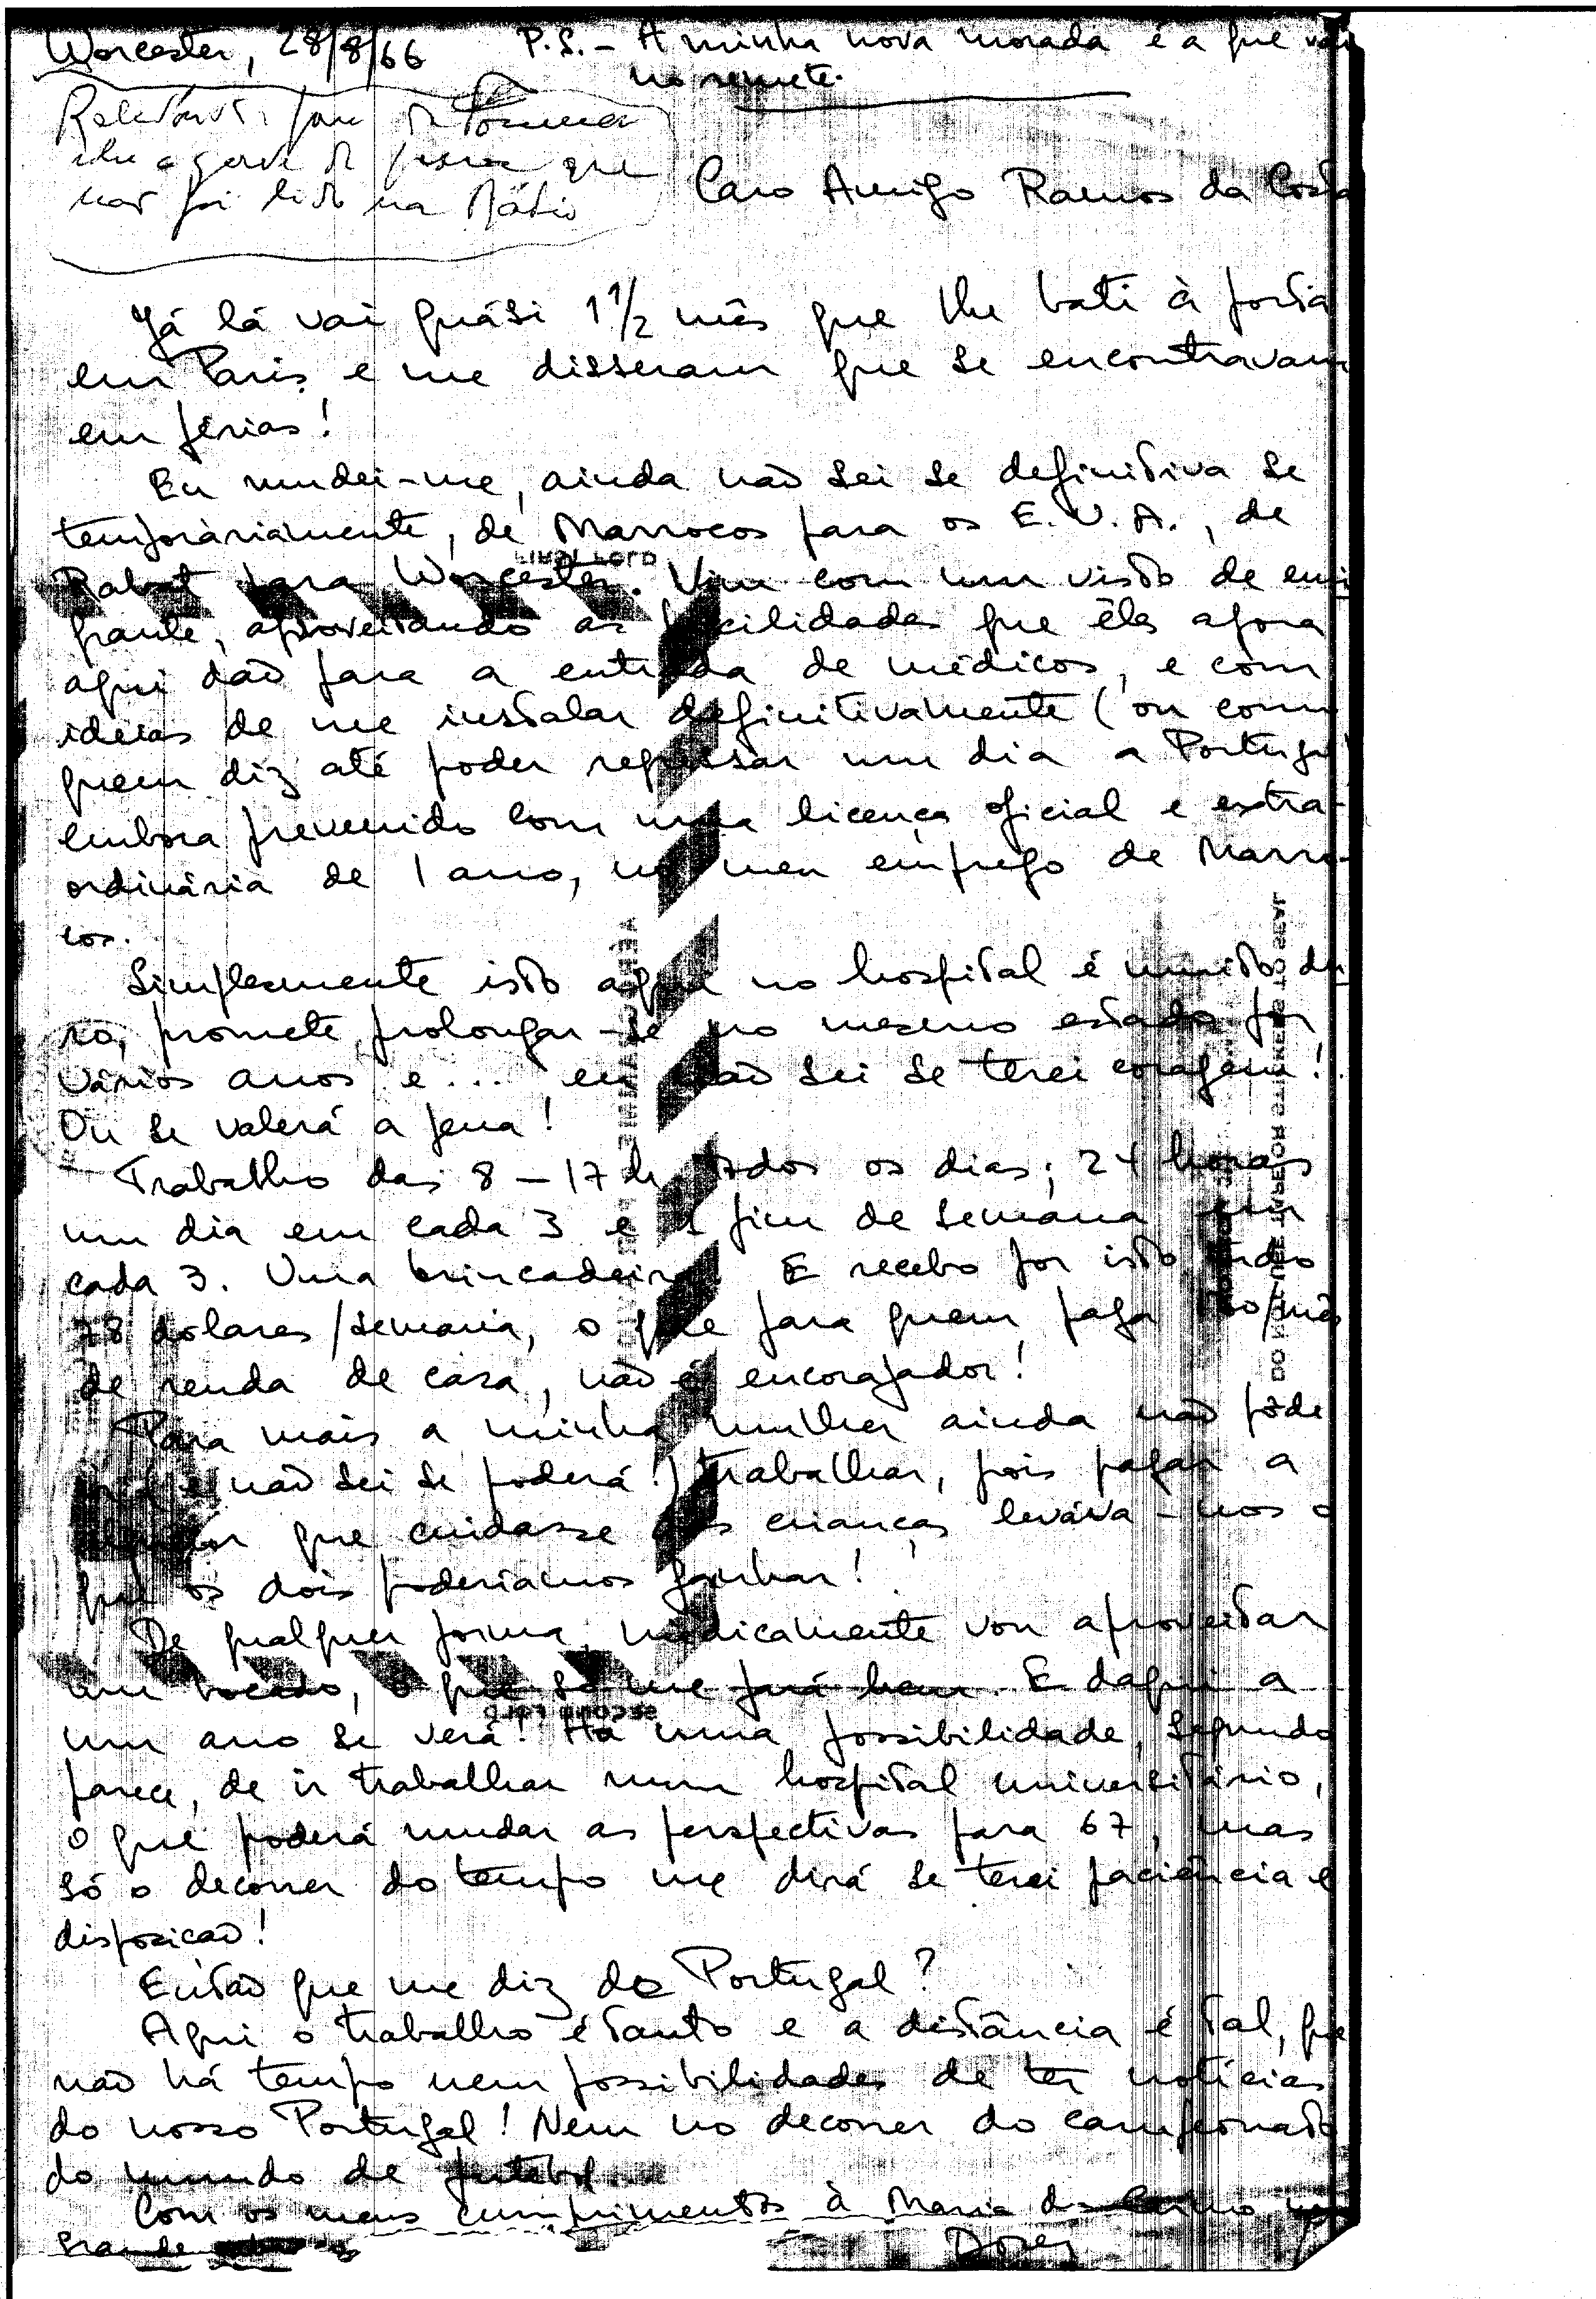 Worcester, 28/8/66
P.S. - A minha nova morada é a que vai
no remete.
que
não foi lido na Rádio
Caro Amigo Ramos da Costa
Já lá vai quási 1 1/2 mês que lhe bati à porta
em Paris e me disseram que se encontravam
em férias!
Eu mudei-me, ainda não sei se definitiva se
temporàriamente, de Marrocos para os E.U.A., de
Rabat para Worcester. Vim com um visto de emi
grante, aproveitando as facilidades que êles agora
aqui dão para a entrada de médicos, e com
ideias de me instalar definitivamente (ou como
quem diz até poder regressar um dia a Portugal
embora prevenido com uma licença oficial e extra-
ordinária de 1 ano, no meu emprego de Marro-
cos.
Simplesmente isto aqui no hospital é muito du
ro, promete prolongar-se no mesmo estado por
vários anos e... eu não sei se terei coragem!
Ou se valerá a pena!
Trabalho das 8-17 h todos os dias; 24 horas
um dia em cada 3 e 1 fim de semana em
cada 3. Uma brincadeira! E recebo por isto tudo
78 dolares/semana, o que para quem paga /mês
de renda de casa, não é encorajador!
Para mais a minha mulher ainda não pôde
(e não sei se poderá!) trabalhar, pois pagar a
alguém que cuidasse das crianças levava-nos o
que os dois poderiamos ganhar!
De qualquer forma, medicamente vou aproveitar
um bocado, o que só me fará bem. E daqui a
um ano se verá! Há uma possibilidade, segundo
parece, de ir trabalhar num hospital universitário,
o que poderá mudar as perspectivas para 67, mas
só o decorrer do tempo me dirá se terei paciência e
disposição!
Então que me diz de Portugal?
Aqui o trabalho é tanto e a distância é tal, que
não há tempo nem possibilidades de ter notícias
do nosso Portugal! Nem no decorrer do campeonato
do mundo de futebol
Com os meus cumprimentos à Maria do
grande
DO NOT USE TAPE OR STICKERS TO SEAL
FIRST FOLD
SECOND FOLD